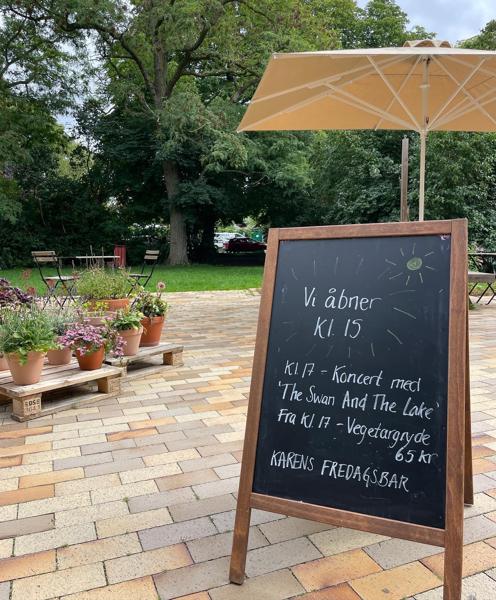 Vi åbner
Kl. 15
Kl 17 - Koncert med
'The Swan And The Lake'
Fra Kl 17 - Vegetargryde
65 kr
KARENS FREDAGSBAR